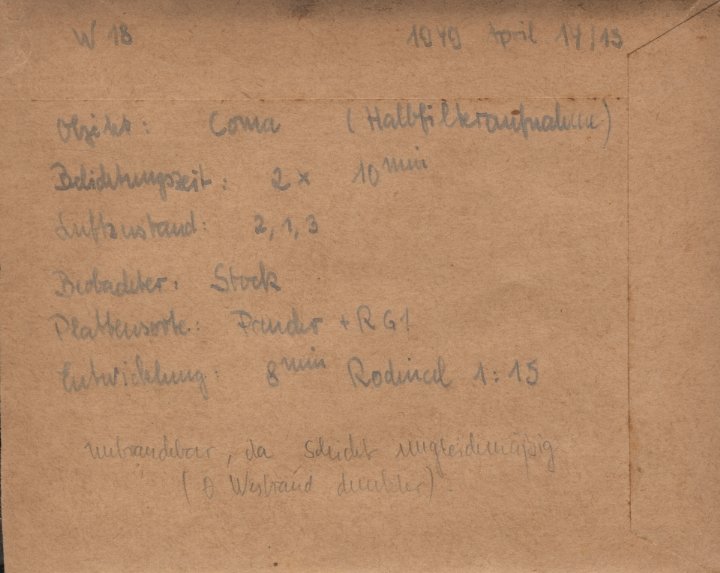 W 18 1949 April 14/15
Objekt: Coma (Halbfilteraufnahme)
Belichtungszeit: 2 x 10 min
Luftzustand: 2, 1, 3
Beobachter: Stock
Plattensorte: + RG1
Entwicklung: 8 min Rodinal 1:15
unbrauchbar, da Schicht ungleichmässig
( Westrand dunkler).